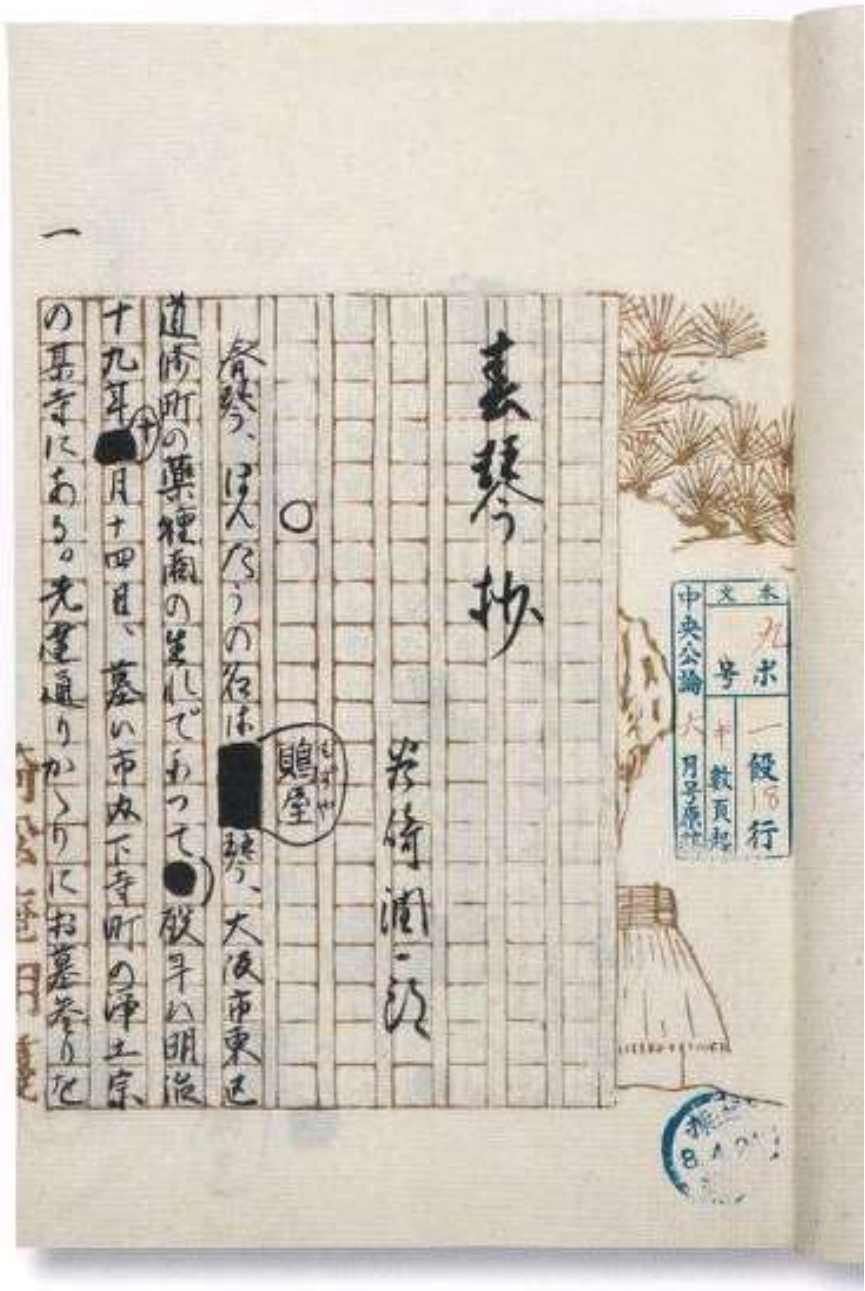 本文 九ポ 一段18行
号 十数頁起
中央公論 六月号原稿
春琴抄
谷崎潤一郎
○
もずや
鵙屋
春琴、ほんたうの名は琴、大阪市東区
道修町の薬種商の生れであつて歿年は明治
十九年十月十四日、墓は市内下寺町の浄土宗
の某寺にある。先達通りかゝりにお墓参りを
一
倚松庵用箋